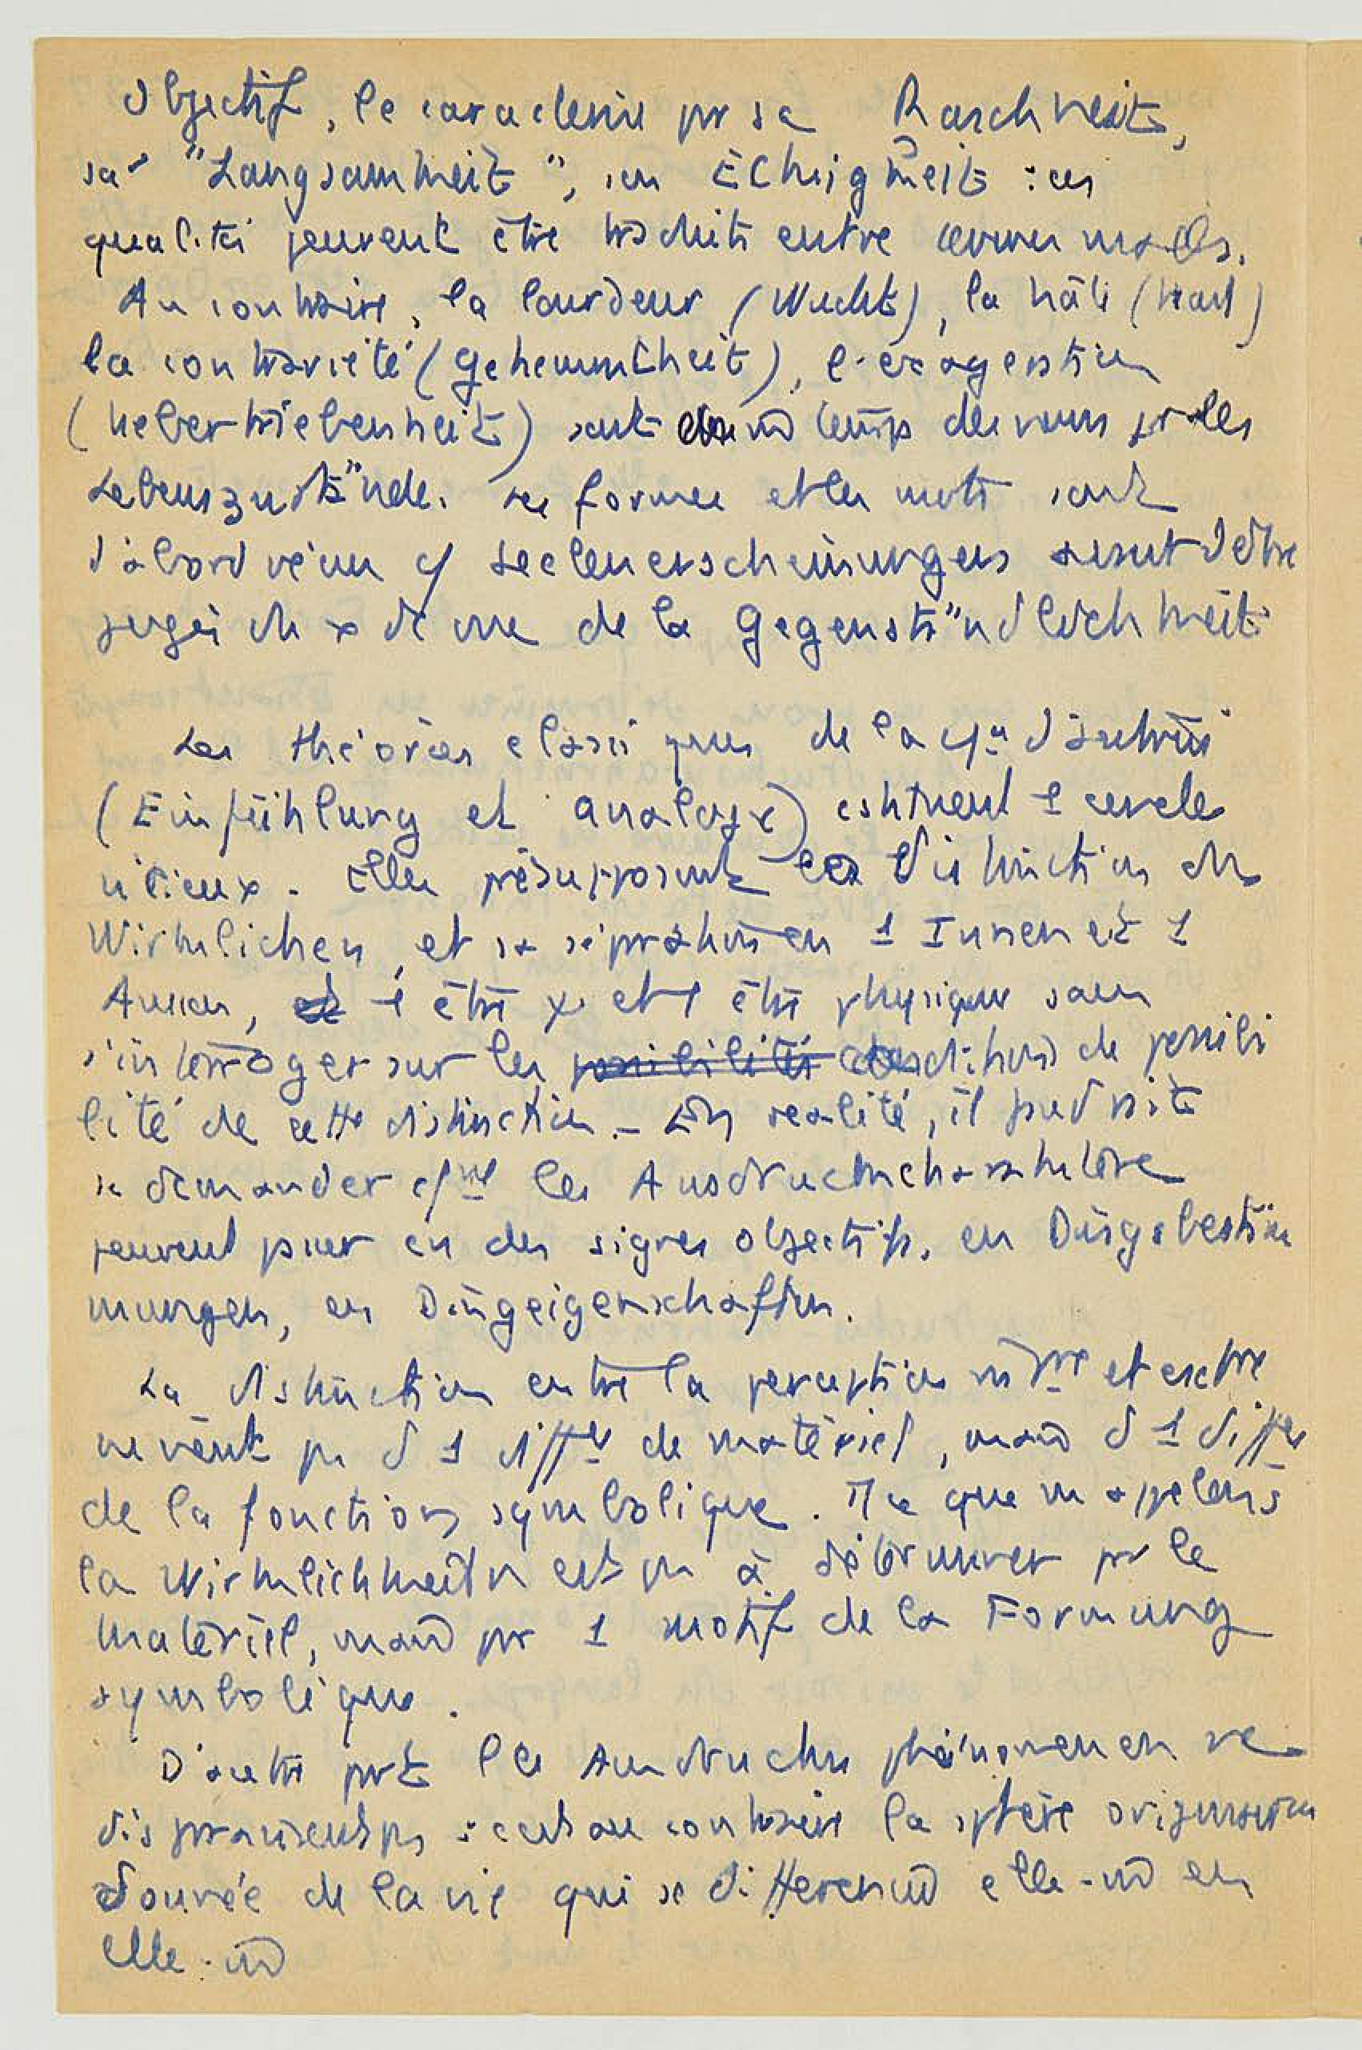 objectif, le caractérise pr sa Raschheit,
sa "Langsamkeit", son Eckigkeit : ces
qualités peuvent être traduits entre comme modes.
Au contraire, la lourdeur (Wucht), la hâte (Hast)
la contrariété (Gehemmtheit), l'exagération
(Uebertriebenheit) sont en m temps des noms pr des
Lebenszustände. Les formes et les mots sont
d'abord vécus cf Seelenerscheinungen avant d'être
jugés du x de vue de la Gegenständlichkeit

Les théories classiques de la cft d'autrui
(Einfühlung et analogie) constituent 1 cercle
vicieux. Elles présupposent la distinction du
Wirklichen, et sa séparation en 1 Innen et 1
Aussen, 1 être ψ et 1 être physique sans
s'interroger sur les possibilités conditions de possibi
lité de cette distinction. - En réalité, il faudrait
se demander cfmt les Ausdruckscharaktere
peuvent passer en des signes objectifs, en Dingsbestim
mungen, en Dingeigenschaften.
La distinction entre la perception intre et extre
ne vient pas d 1 diffce de matériel, mais d 1 diffce
de la fonction symbolique. Ce que ns appelons
la Wirklichkeit n'est pas à déterminer pr le
matériel, mais pr 1 motif de la Formung
symbolique.
D'autre part les Ausdrucksphänomenen ne
disparaissent pas : c'est au contraire la sphère originaire
donnée de la vie qui se différencie elle-m en
elle-m